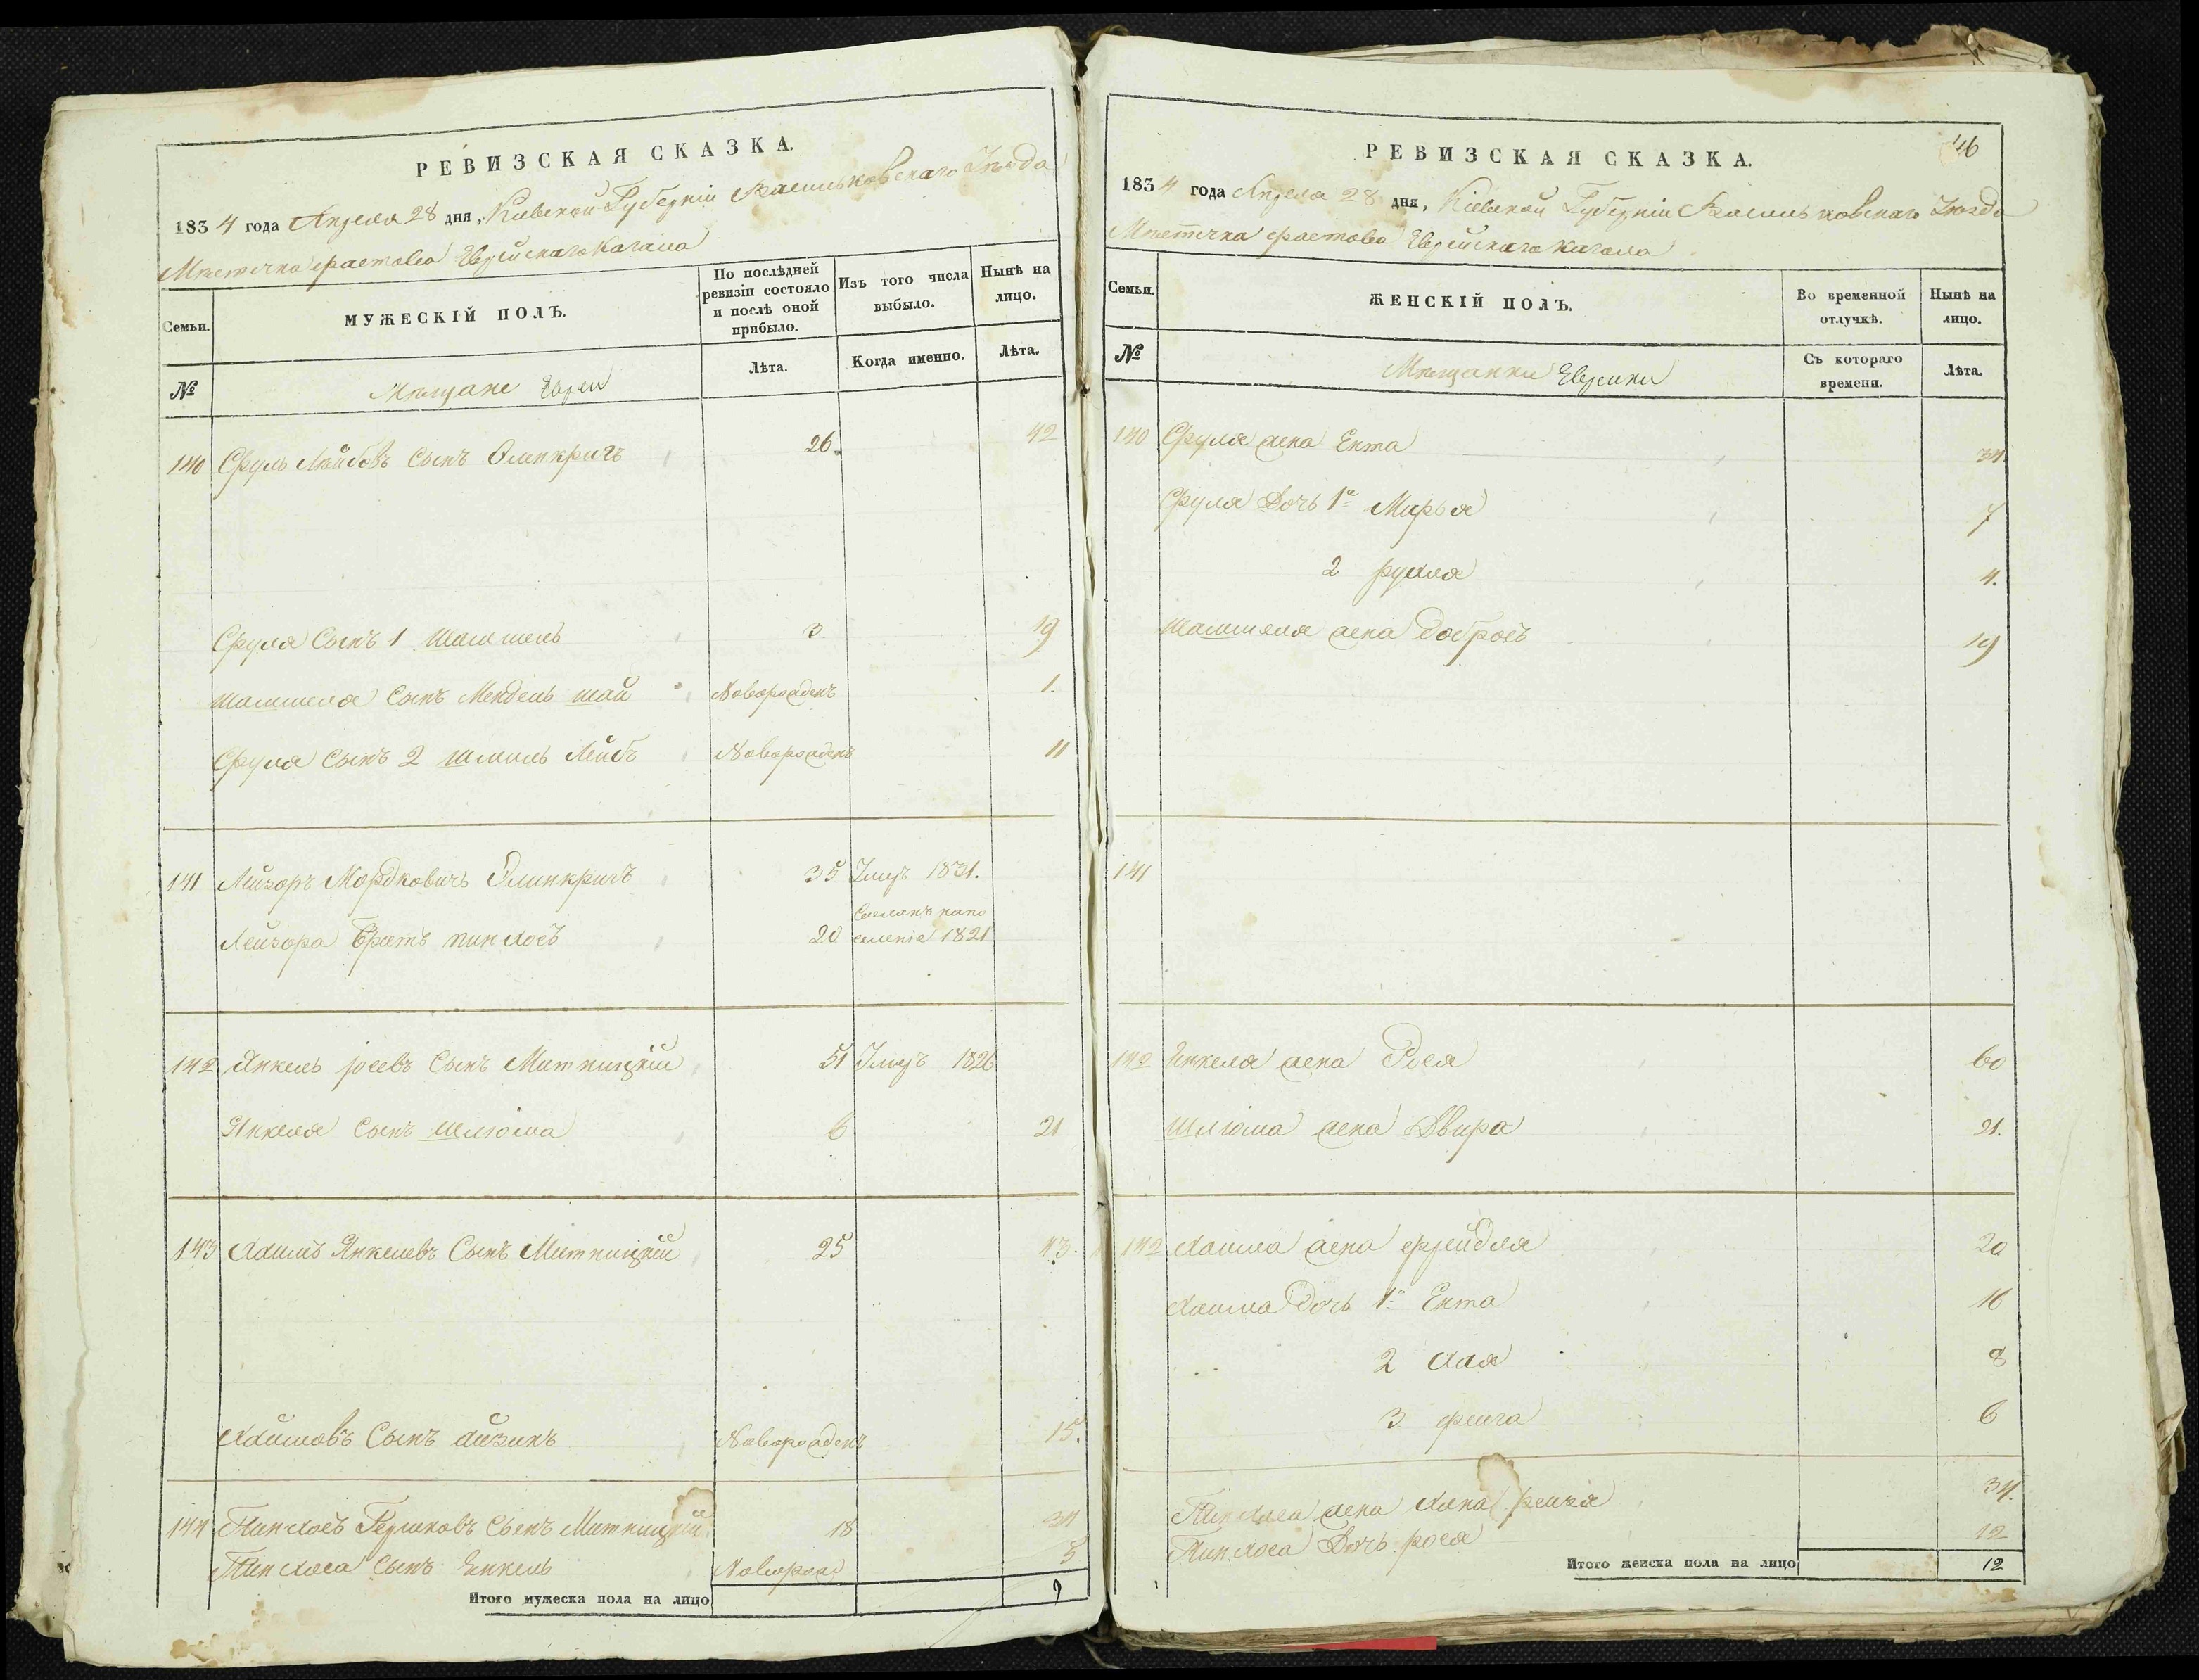 РЕВИЗСКАЯ СКАЗКА.
1834 года Апреля 28 дня, Кіевской Губерніи Васильковскаго Уезда
Местечка фастова Еврейскаго Кагала
Семьи.
МУЖЕСКІЙ ПОЛЪ.
По послѣдней ревизіи состояло и послѣ оной прибыло.
Изъ того числа выбыло.
Нынѣ на лицо.
№
Мещане Евреи
Лѣта.
Когда именно.
Лѣта.
140 Сруль Лейбовъ Сынъ Олинкригъ 26 42
Сруля Сынъ 1 Шамшель 3 19
Шамшеля Сынъ Мендель шай Новорожденъ 1.
Сруля Сынъ 2 Шмиль Лейбъ Новорожденъ 11
141 Лейзоръ Мордковичъ Олинкригъ 35 Умеръ 1831.
Лейзора Братъ пинхосъ 20 1821
142 Янкель Сынъ Митницкій 51 Умеръ 1826
Янкеля Сынъ Шлиома 6 21
143 Хаимъ Янкелевъ Сынъ Митницкій 25 43.
Хаимовъ Сынъ айзикъ Новорожденъ 15.
144 Пинхосъ Гершковъ Сынъ Митницкій 18 34
Пинхоса Сынъ Янкель Новорож 5
Итого мужеска пола на лицо 9
46
РЕВИЗСКАЯ СКАЗКА.
1834 года Апреля 28 дня, Кіевской Губерніи Васильковскаго Уезда
Местечка фастова Еврейскаго Кагала
Семьи.
ЖЕНСКІЙ ПОЛЪ.
Во временной отлучкѣ.
Нынѣ на лицо.
№
Мещанки Еврейки
Съ котораго времени.
Лѣта.
140 Сруля жена Ента 34.
Сруля Дочь 1я Мирья 7
2 рухля 4.
Шамшеля жена Добросъ 19
141
142 Янкеля жена Рося 60
Шлиома жена Двира 21.
142 Хаима жена фрейдля 20
Хаима Дочь 1я Ента 16
2 Хая 8
3 фейга 6
Пинхаса жена Хана рейзя 34.
Пинхоса Дочь рося 12
Итого женска пола на лицо 12